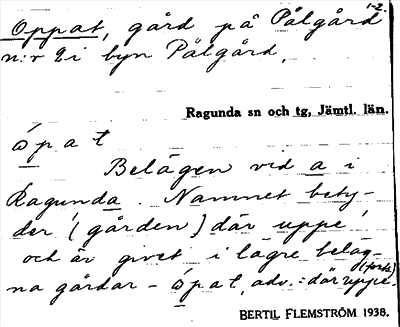 1-2.
Oppat, gård på Pålgård
n:r 2 i byn Pålgård.
Ragunda sn och tg, Jämtl. län.
ópat
Belägen vid a i
Ragunda. Namnet bety-
der (gården) där uppe,
och är givet i lägre beläg-
na gårdar - ópat, adv. = där uppe.
BERTIL FLEMSTRÖM 1938.